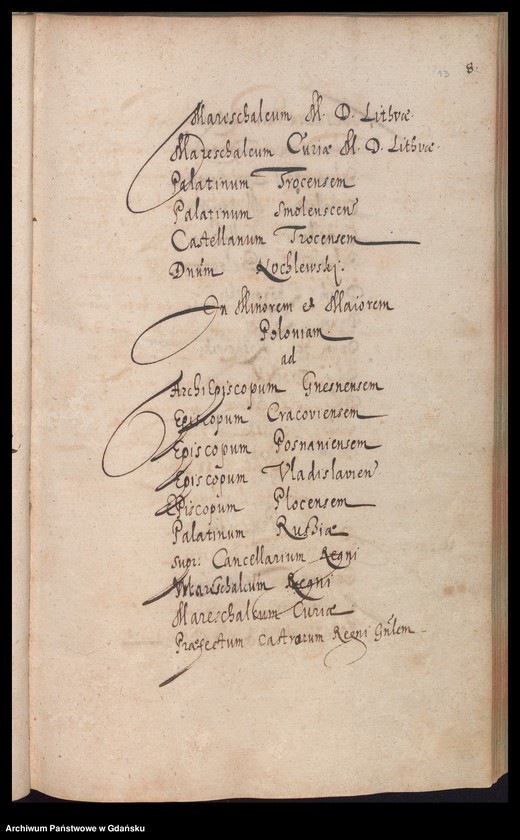 13 8:
Mareschalcum M. D. Lithvæ.
Mareschalcum Curiæ M. D. Lithvæ.
Palatinum Trocensem
Palatinum Smolenscens
Castellanum Trocensem
Dnum Kochlewskj.
In Minorem et Maiorem
Poloniam.
ad
ArchiEpiscopum Gnesnensem
Episcopum Cracoviensem
Episcopum Posnaniensem
Episcopum Vladislavien
Episcopum Plocensem
Palatinum Rußiæ
supr: Cancellarium Regni
Mareschalcum Regni
Mareschalcum Curiæ
Præfectum Castrorum Regni Gnlem
Archiwum Państwowe w Gdańsku